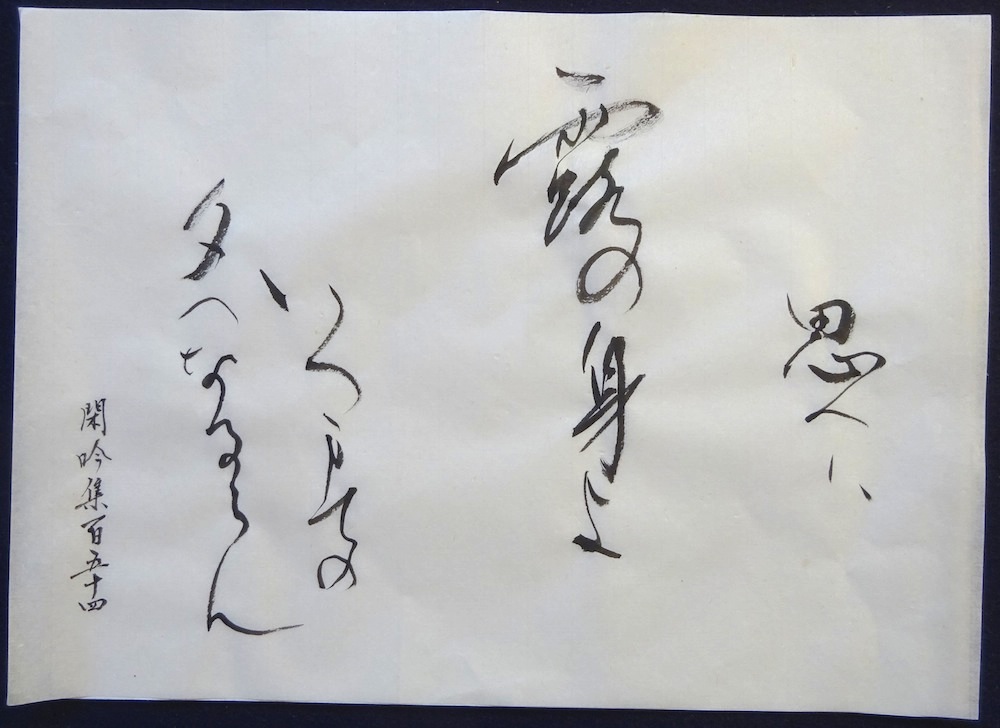 思へハ
露の身よ
いつまての
夕へなるらん
閑吟集百五十四